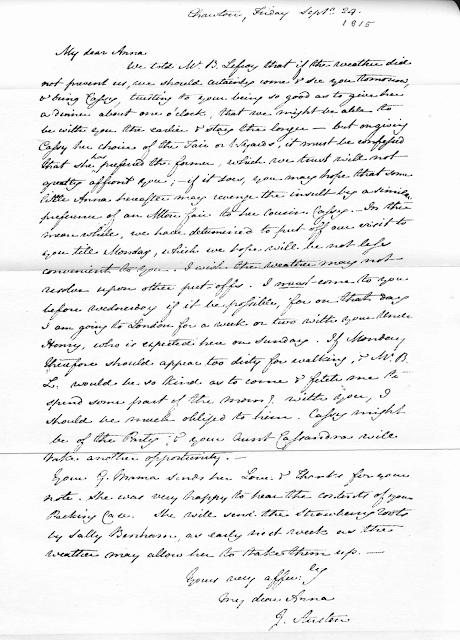 Chawton, Friday Septr. 29.
1815
My dear Anna
We told Mr. B. Lefroy that if the weather did
not prevent us, we should certainly come & see you tomorrow,
& bring Cassy, trusting to your being so good as to give her
a dinner about one o'clock, that we might be able to
be with you the earlier & stay the longer — but on giving
Cassy her choice of the Fair or Wyards, it must be confessed
that she has preferred the former, which we trust will not
greatly affront you; — if it does, you may hope that some
little Anna hereafter may revenge the insult by a similar
preference of an Alton Fair to her Cousin Cassy. — In the
mean while, we have determined to put off our visit to
you till Monday, which we hope will be not less
convenient to You. — I wish the weather may not
resolve upon other put-offs. I must come to you
before Wednesday if it be possible, for on that day
I am going to London for a week or two with your Uncle
Henry, who is expected here on Sunday. If Monday
therefore should appear too dirty for walking, & Mr. B.
L. would be so kind as to come & fetch me to
spend some part of the morng. with you, I
should be much obliged to him. Cassy might
be of the Party, & your Aunt Cassandra will
take another opportunity. —
Your G. Mama sends her Love & Thanks for your
note. She was very happy to hear the contents of your
Packing Case. She will send the Strawberry roots
by Sally Benham, as early next week as the
weather may allow her to take them up. —
Yours very affec:ly
My dear Anna
J. Austen